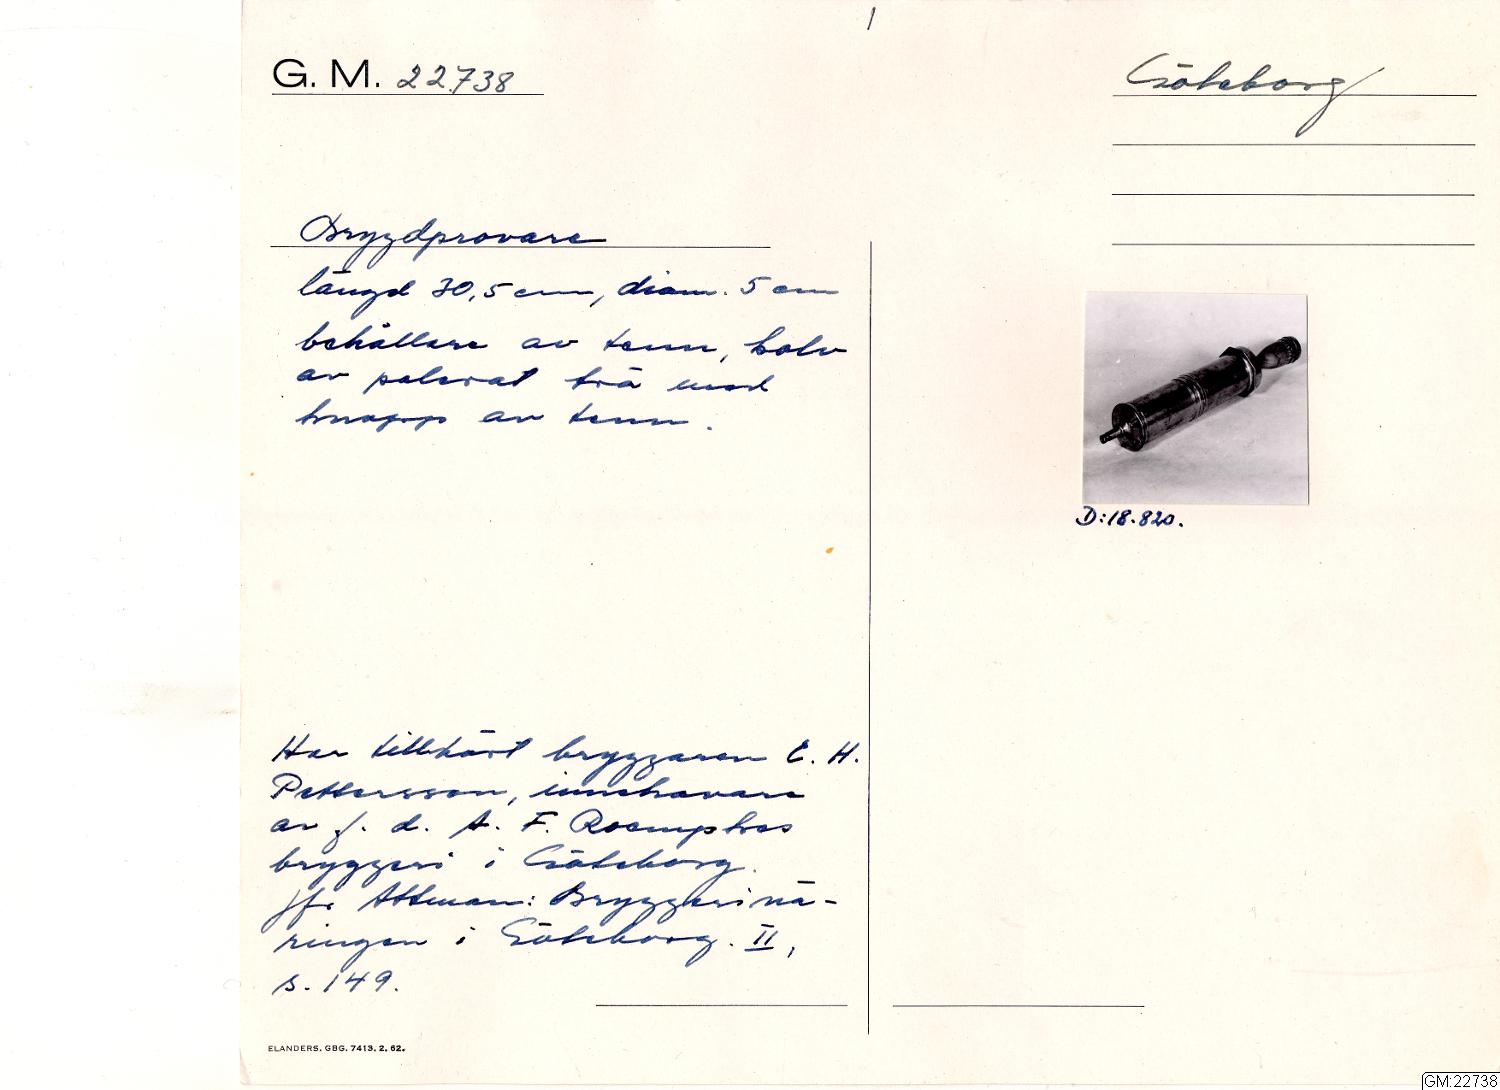 G. M. 22738
Göteborg
Brygdprovare
längd 30,5 cm, diam. 5 cm
behållare av tenn, kolv
av polerat trä med
knopp av tenn.
D:18.820.
Har tillhört bryggaren E. H.
Pettersson, innehavare
av f. d. A. F. Roempkes
bryggeri i Göteborg.
Jfr Attman: Bryggerinä-
ringen i Göteborg. II,
s. 149.
ELANDERS. GBG. 7413. 2. 62.
GM:22738